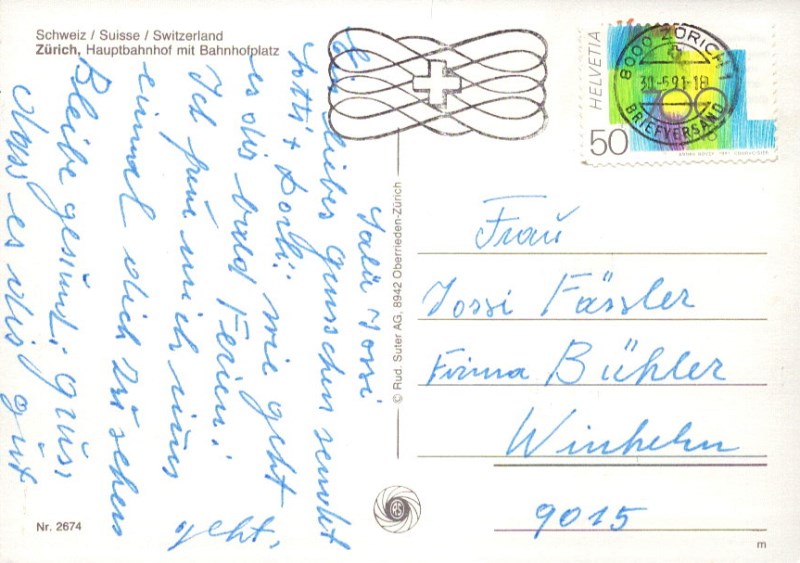 Schweiz / Suisse / Switzerland
Zürich, Hauptbahnhof mit Bahnhofplatz
Salü Jossi
Ein liebes grüsschen sendet
Lotti + Dorli; wie geht
es dir bald Ferien!
Ich freue mich uns
einmal dich zu sehen
Bleibe gesund; grüss,
dass es dir gut
geht.
Nr. 2674
© Rud. Suter AG, 8942 Oberrieden-Zürich
RS
HELVETIA
50
8000 ZÜRICH 1
30.-5.91-18
BRIEFVERSAND
Frau
Jossi Fässler
Firma Bühler
Winkeln
9015
m